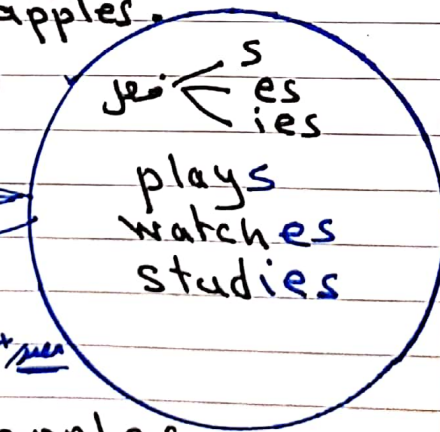 apples.
فعل s
es
ies
plays
watches
studies